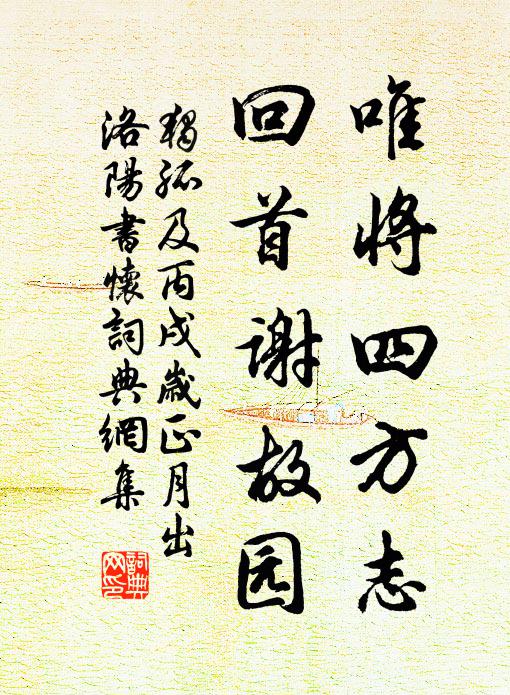 唯将四方志
回首谢故园
獨孤及丙戌歲正月出
洛陽書懷詞典網集
詞典网印